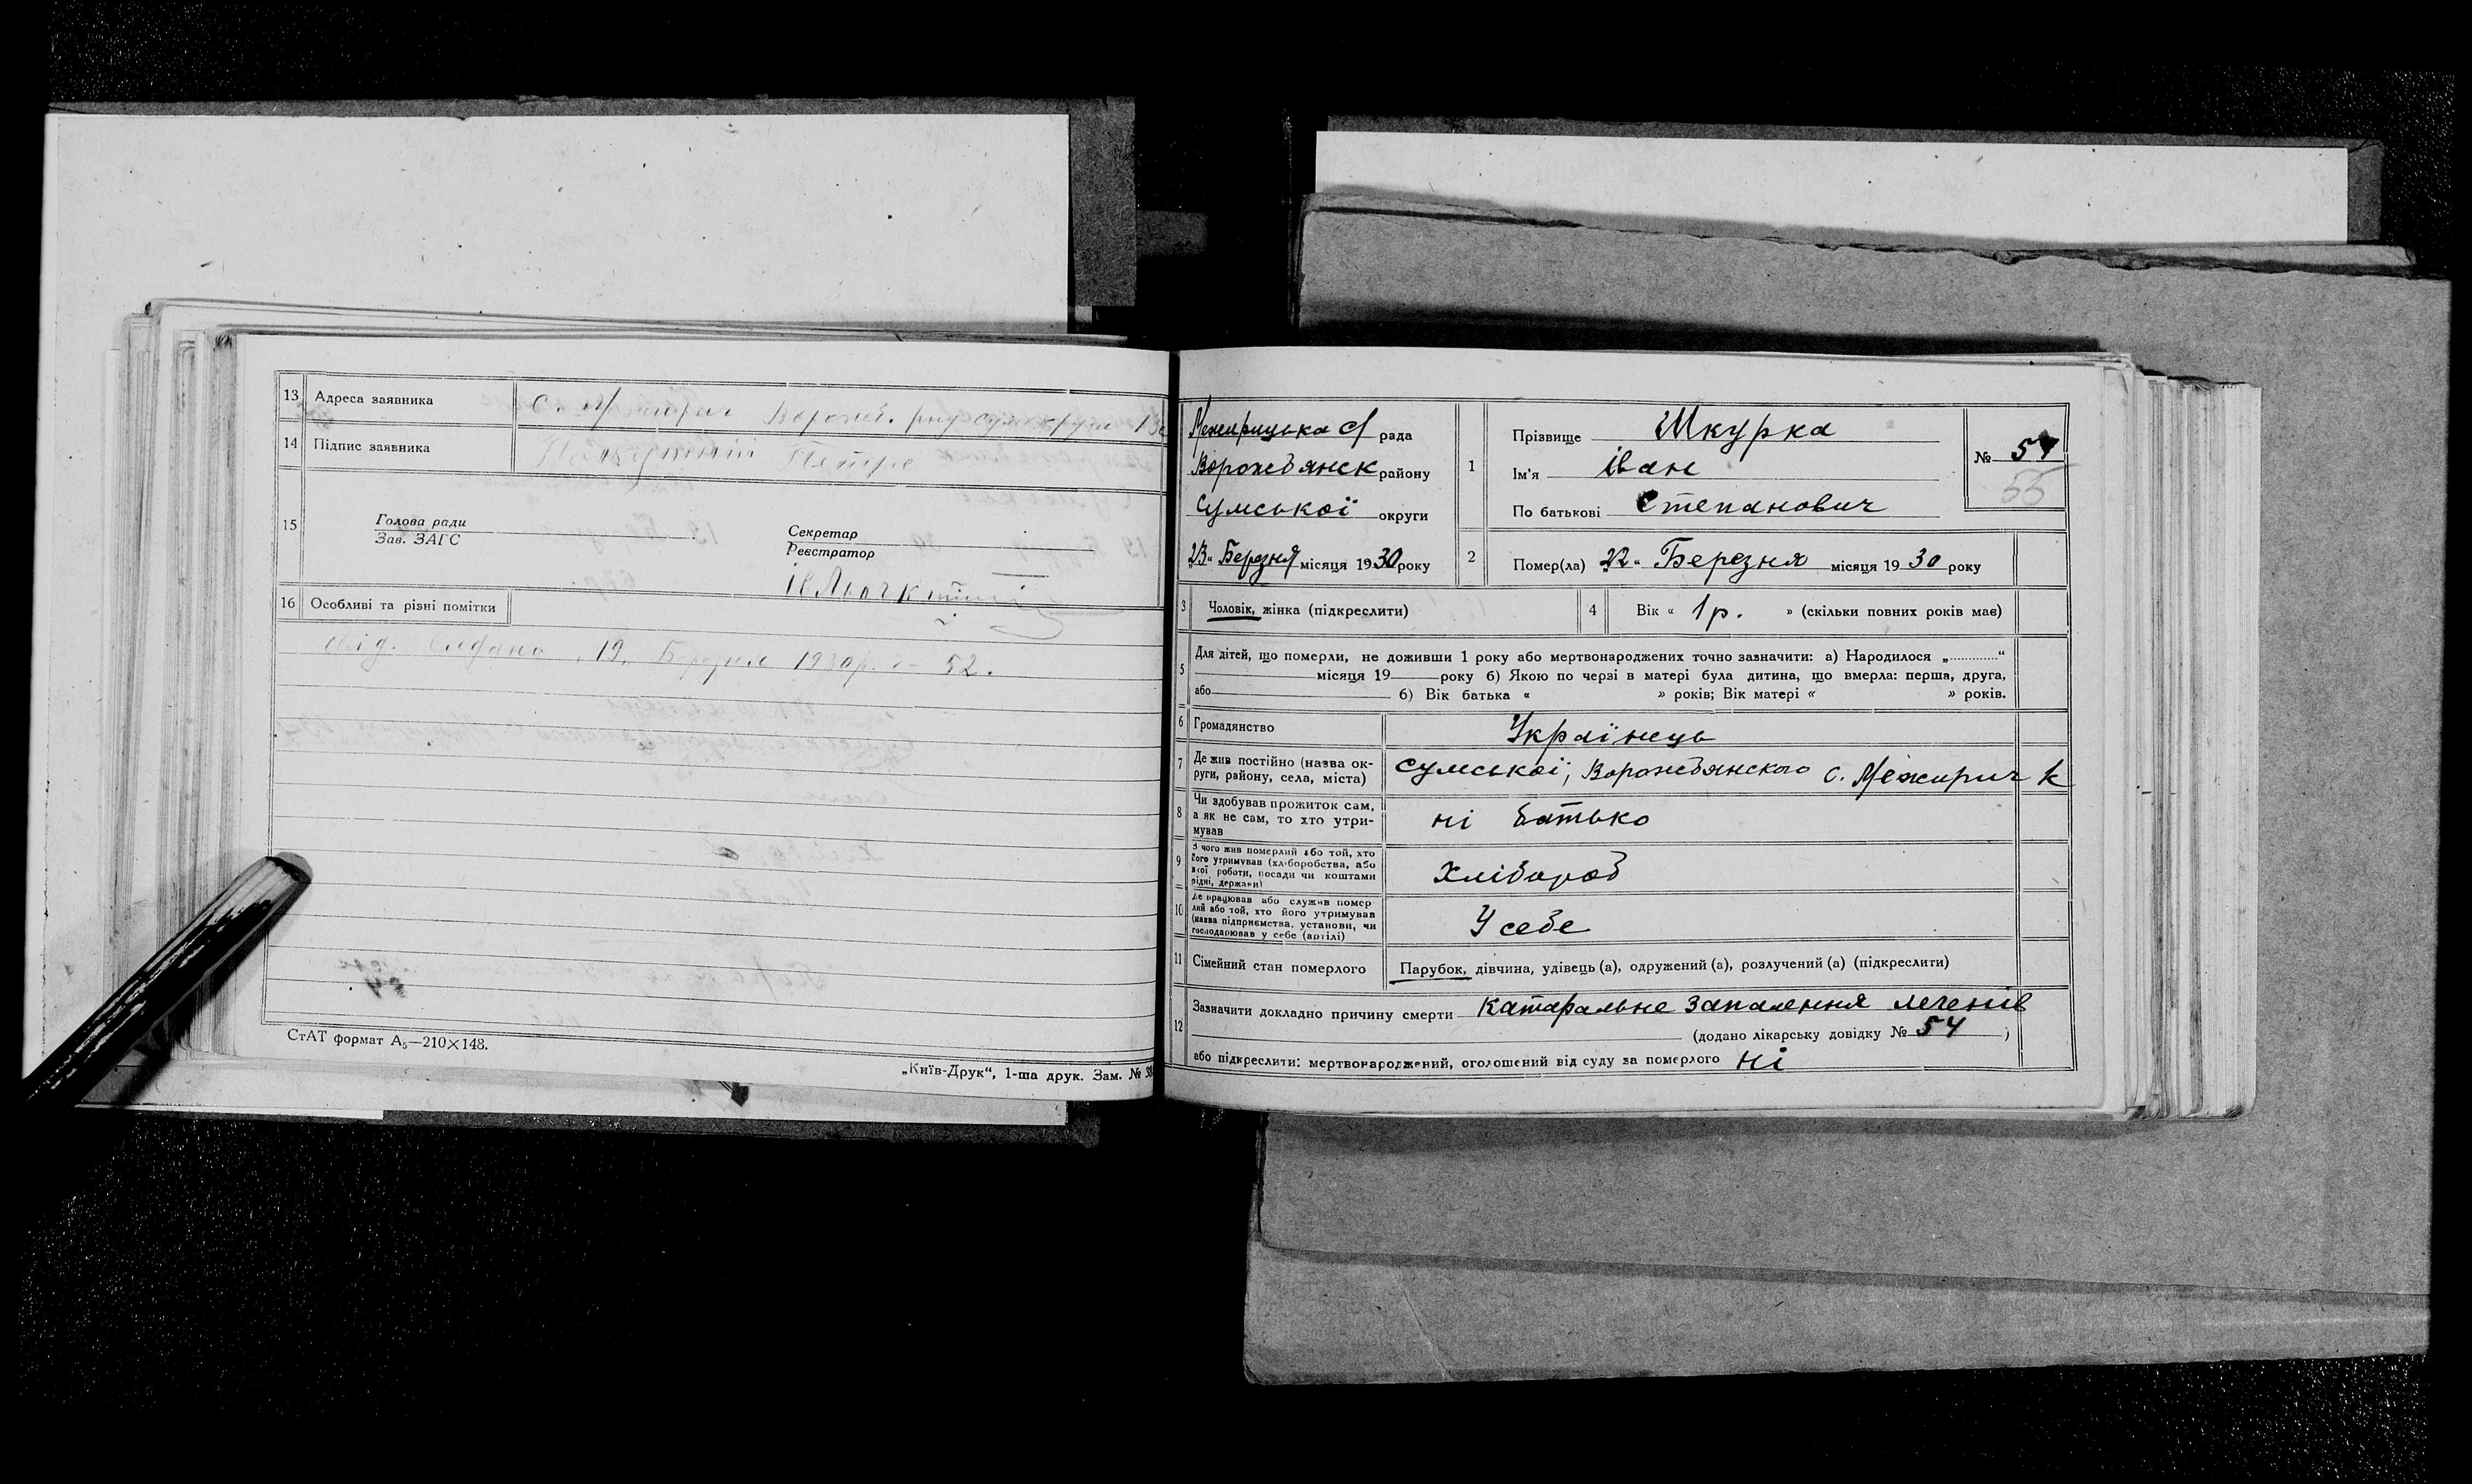 13 Адреса заявника с. Межирич Ворожб. р-ну сумск округи
14 Підпис заявника Петро
15 Голова ради
Зав. ЗАГС
Секретар
Реєстратор
16 Особливі та різні помітки
19. Березня 1930р. 52.
СтАТ формат А5—210×148.
„Київ-Друк“, 1-ша друк. Зам. №
Межирицька с/ рада
Ворожбянск району
Сумської округи
„23“ Березня місяця 1930 року
1 Прізвище Шкурка
Ім'я іван
По батькові Степанович
№ 54
55
2 Помер(ла) „22“ Березня місяця 1930 року
3 Чоловік, жінка (підкреслити)
4 Вік « 1р. » (скільки повних років має)
5 Для дітей, що померли, не доживши 1 року або мертвонароджених точно зазначити: а) Народилося „............“
місяця 19 року б) Якою по черзі в матері була дитина, що вмерла: перша, друга,
або б) Вік батька « » років; Вік матері « » років.
6 Громадянство Українець
7 Де жив постійно (назва ок-
руги, району, села, міста) Сумської, Ворожбянского с. Межирич к
8 Чи здобував прожиток сам,
а як не сам, то хто утри-
мував ні батько
9 З чого жив померлий або той, хто
його утримував (хліборобства, або
якої роботи, посади чи коштами
рідні, держави) Хлібороб
10 Де працював або служив помер
лий або той, хто його утримував
(назва підприємства, установи, чи
господарював у себе (артілі) У себе
11 Сімейний стан померлого Парубок, дівчина, удівець (а), одружений (а), розлучений (а) (підкреслити)
12 Зазначити докладно причину смерти Катаральне запалення легенів
(додано лікарську довідку № 54 )
або підкреслити: мертвонароджений, оголошений від суду за померлого ні